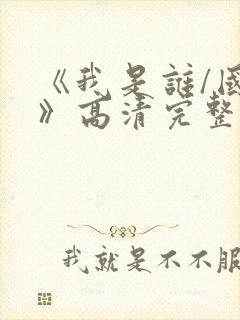 《我是誰/國
》高清完整
我就是不不服